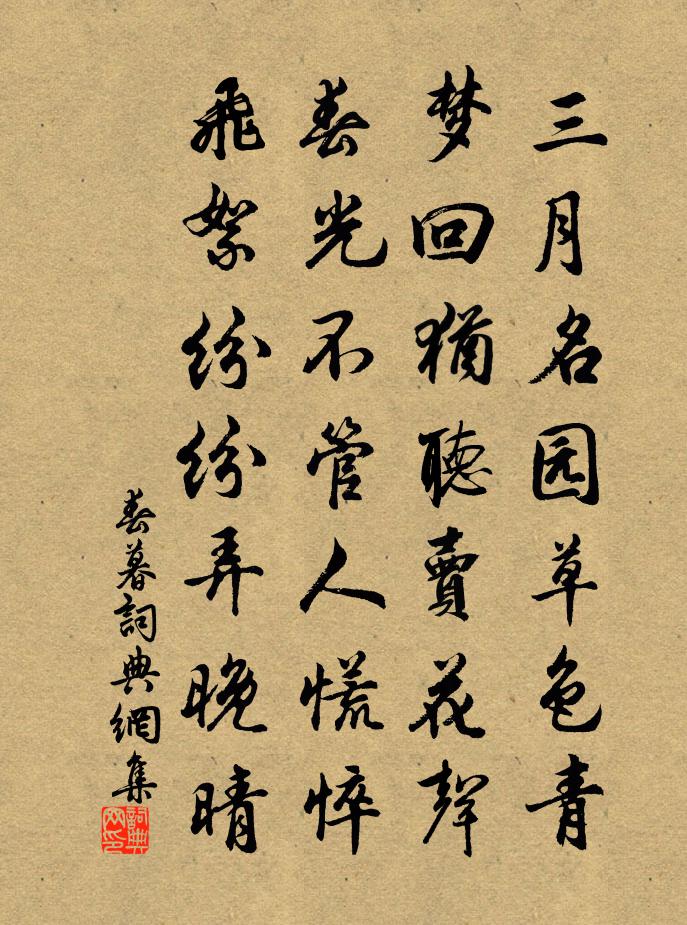 三月名园草色青
梦回猶聴賣花聲
春光不管人慌悴
飛絮纷纷弄晚晴
春暮詞典網集
詞典网印